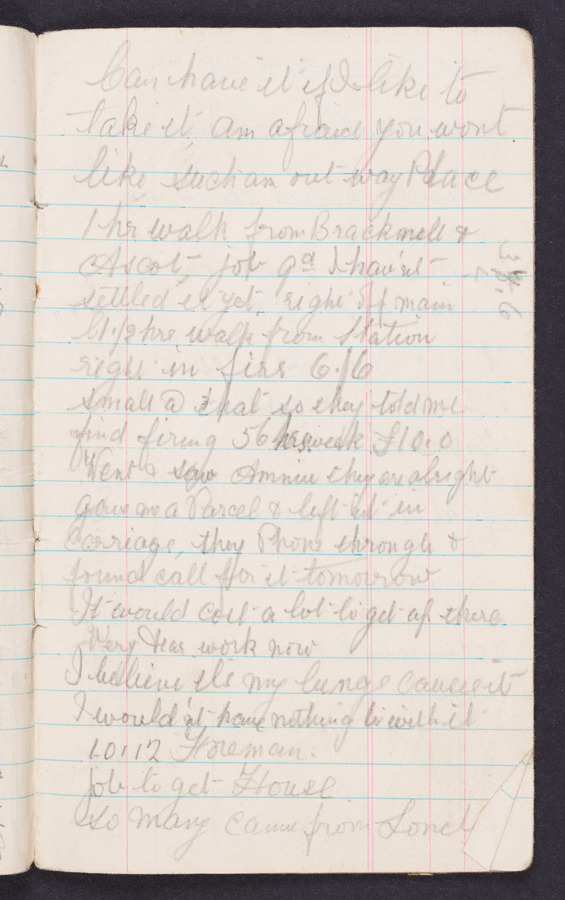 Can have it if I like to
take it, am afraid you wont
like such an out way Place
1 hr walk from Bracknell &
Ascot, job 9d I hav'nt
settled it yet, right off main
1/2 hrs walk from Station
right in firs 6/6
small a that so they told me
find firing 56 hrs week £1 0.0
Went & saw Ammie they are alright
gave me a Parcel & left it in
Carriage, they Phone through &
found call for it tomorrow
It would cost a lot to get up there
Very dear work now
I believe its my lungs causes it
I would'nt have nothing to with it
10.12 Foreman.
Job to get House
So many came from Lond